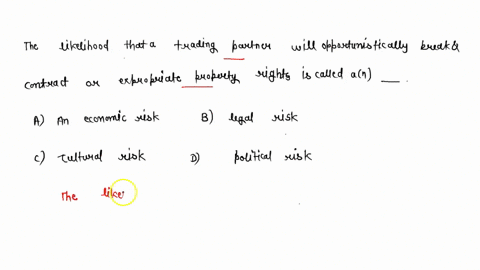 The likelihood that a trading partner will opportunistically break &
contract or expropriate property rights is called a(n) ___.
A) An economic risk B) legal risk
C) Cultural risk D) political risk
The like